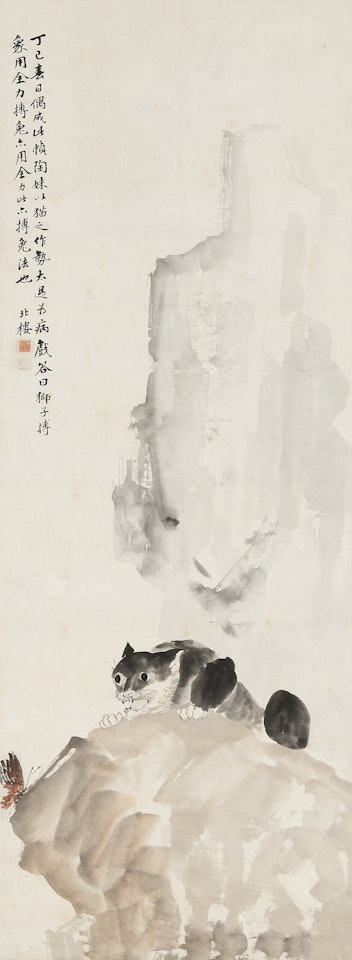 丁巳春日偶成此幀陶妹以猫之作勢太過為病戲答曰獅子搏
象用全力搏兔亦用全力此亦搏兔法也
北樓